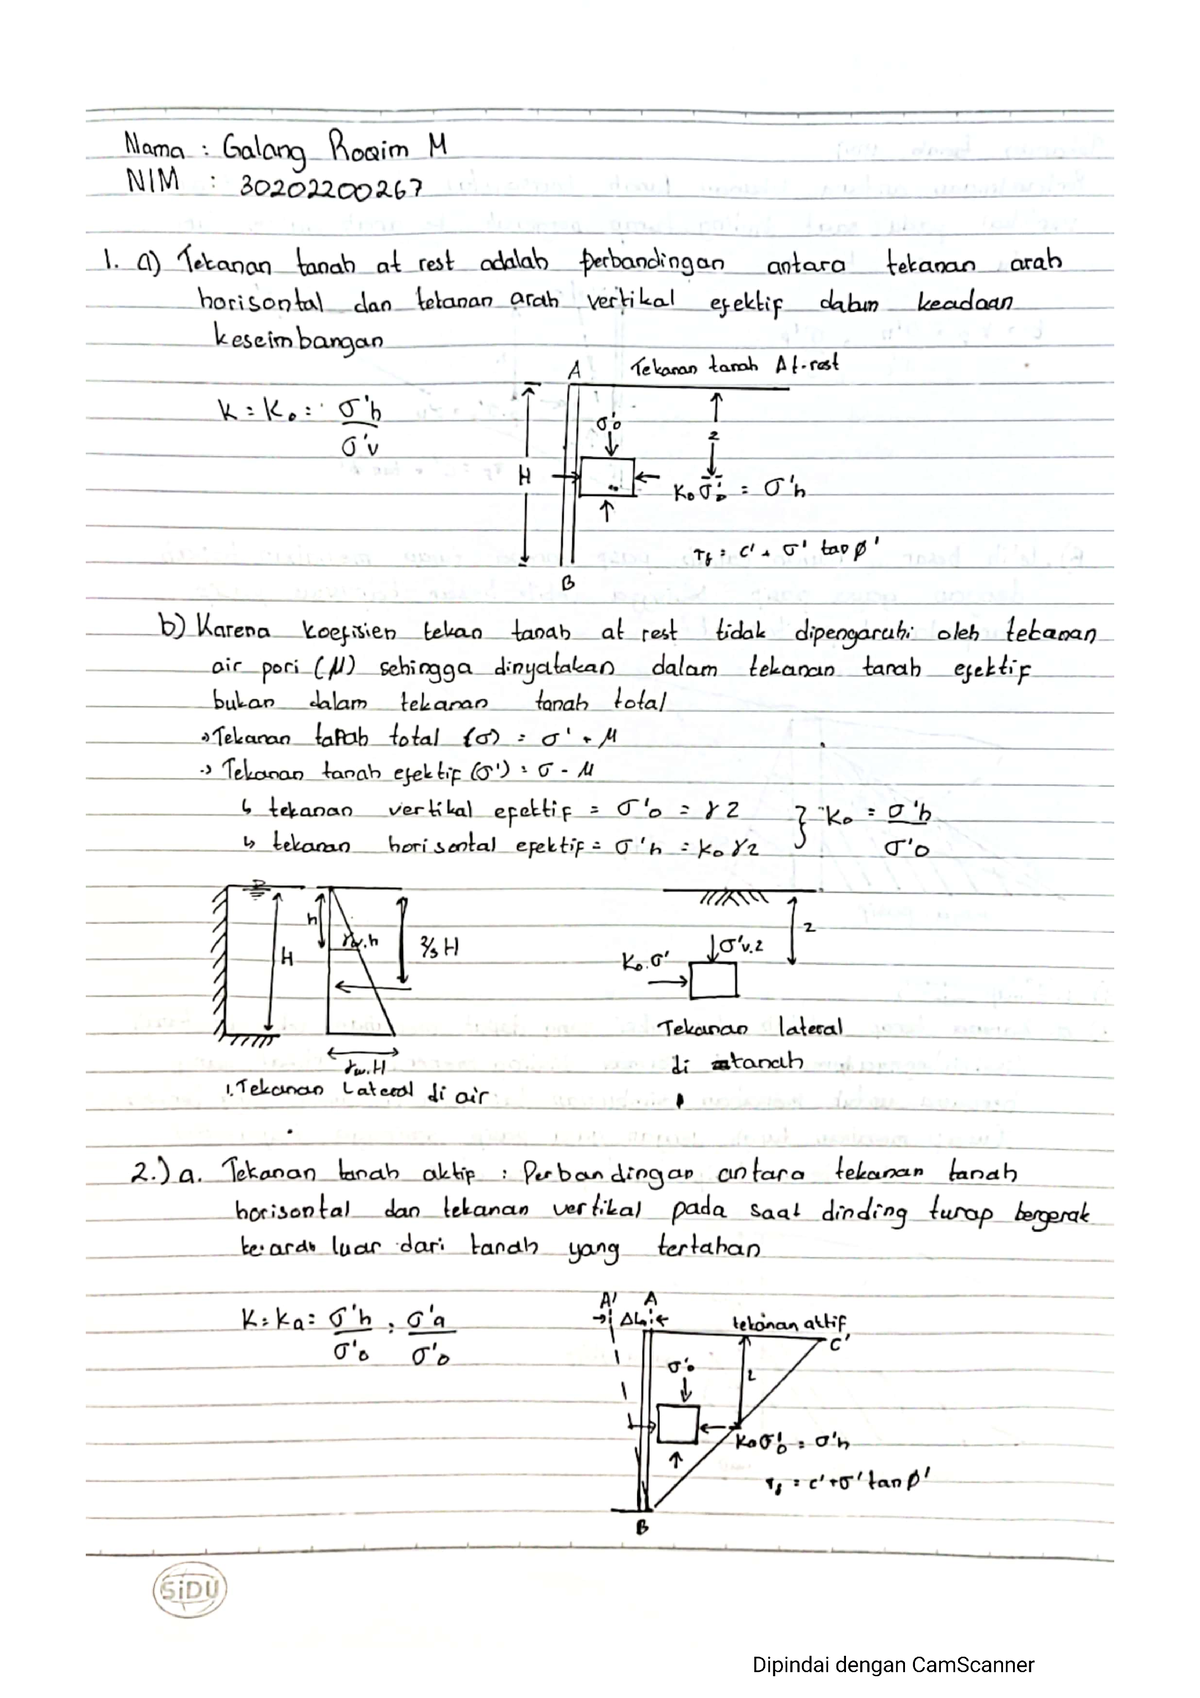 Nama : Galang Roqim M
NIM : 30202200267
1. a) Tekanan tanah at rest adalah perbandingan antara tekanan arah
horisontal dan tekanan arah vertikal efektif dalam keadaan
keseimbangan
A Tekanan tanah At-rest
K = K₀ = σ'h / σ'v
σ'o
z
H
K₀ σ'o = σ'h
τf = c' + σ' tan ø'
B
b) Karena koefisien tekan tanah at rest tidak dipengaruhi oleh tekanan
air pori (μ) sehingga dinyatakan dalam tekanan tanah efektif
bukan dalam tekanan tanah total
→ Tekanan tanah total (σ) = σ' + μ
→ Tekanan tanah efektif (σ') = σ - μ
↳ tekanan vertikal efektif = σ'o = γ z } K₀ = σ'h / σ'o
↳ tekanan horisontal efektif = σ'h = K₀ γ z
h
H
γw.h
2/3 H
γw.H
1. Tekanan Lateral di air
z
σ'v.z
K₀.σ'
Tekanan lateral
di tanah
2.) a. Tekanan tanah aktip : Perbandingan antara tekanan tanah
horisontal dan tekanan vertikal pada saat dinding turap bergerak
ke arah luar dari tanah yang tertahan
K = Ka = σ'h / σ'o = σ'a / σ'o
A' A
ΔL
tekanan aktif
C'
σ'o
z
K₀σ'o = σ'h
τf = c' + σ' tan ø'
B
SiDU
Dipindai dengan CamScanner